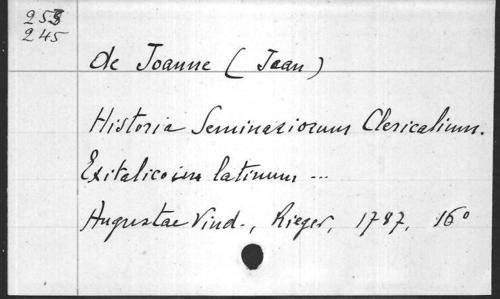 253
245
de Joanne (Jean)
Historia Seminariorum Clericalium.
Ex italico in latinum ...
Augustae Vind., Rieger, 1787, 16º